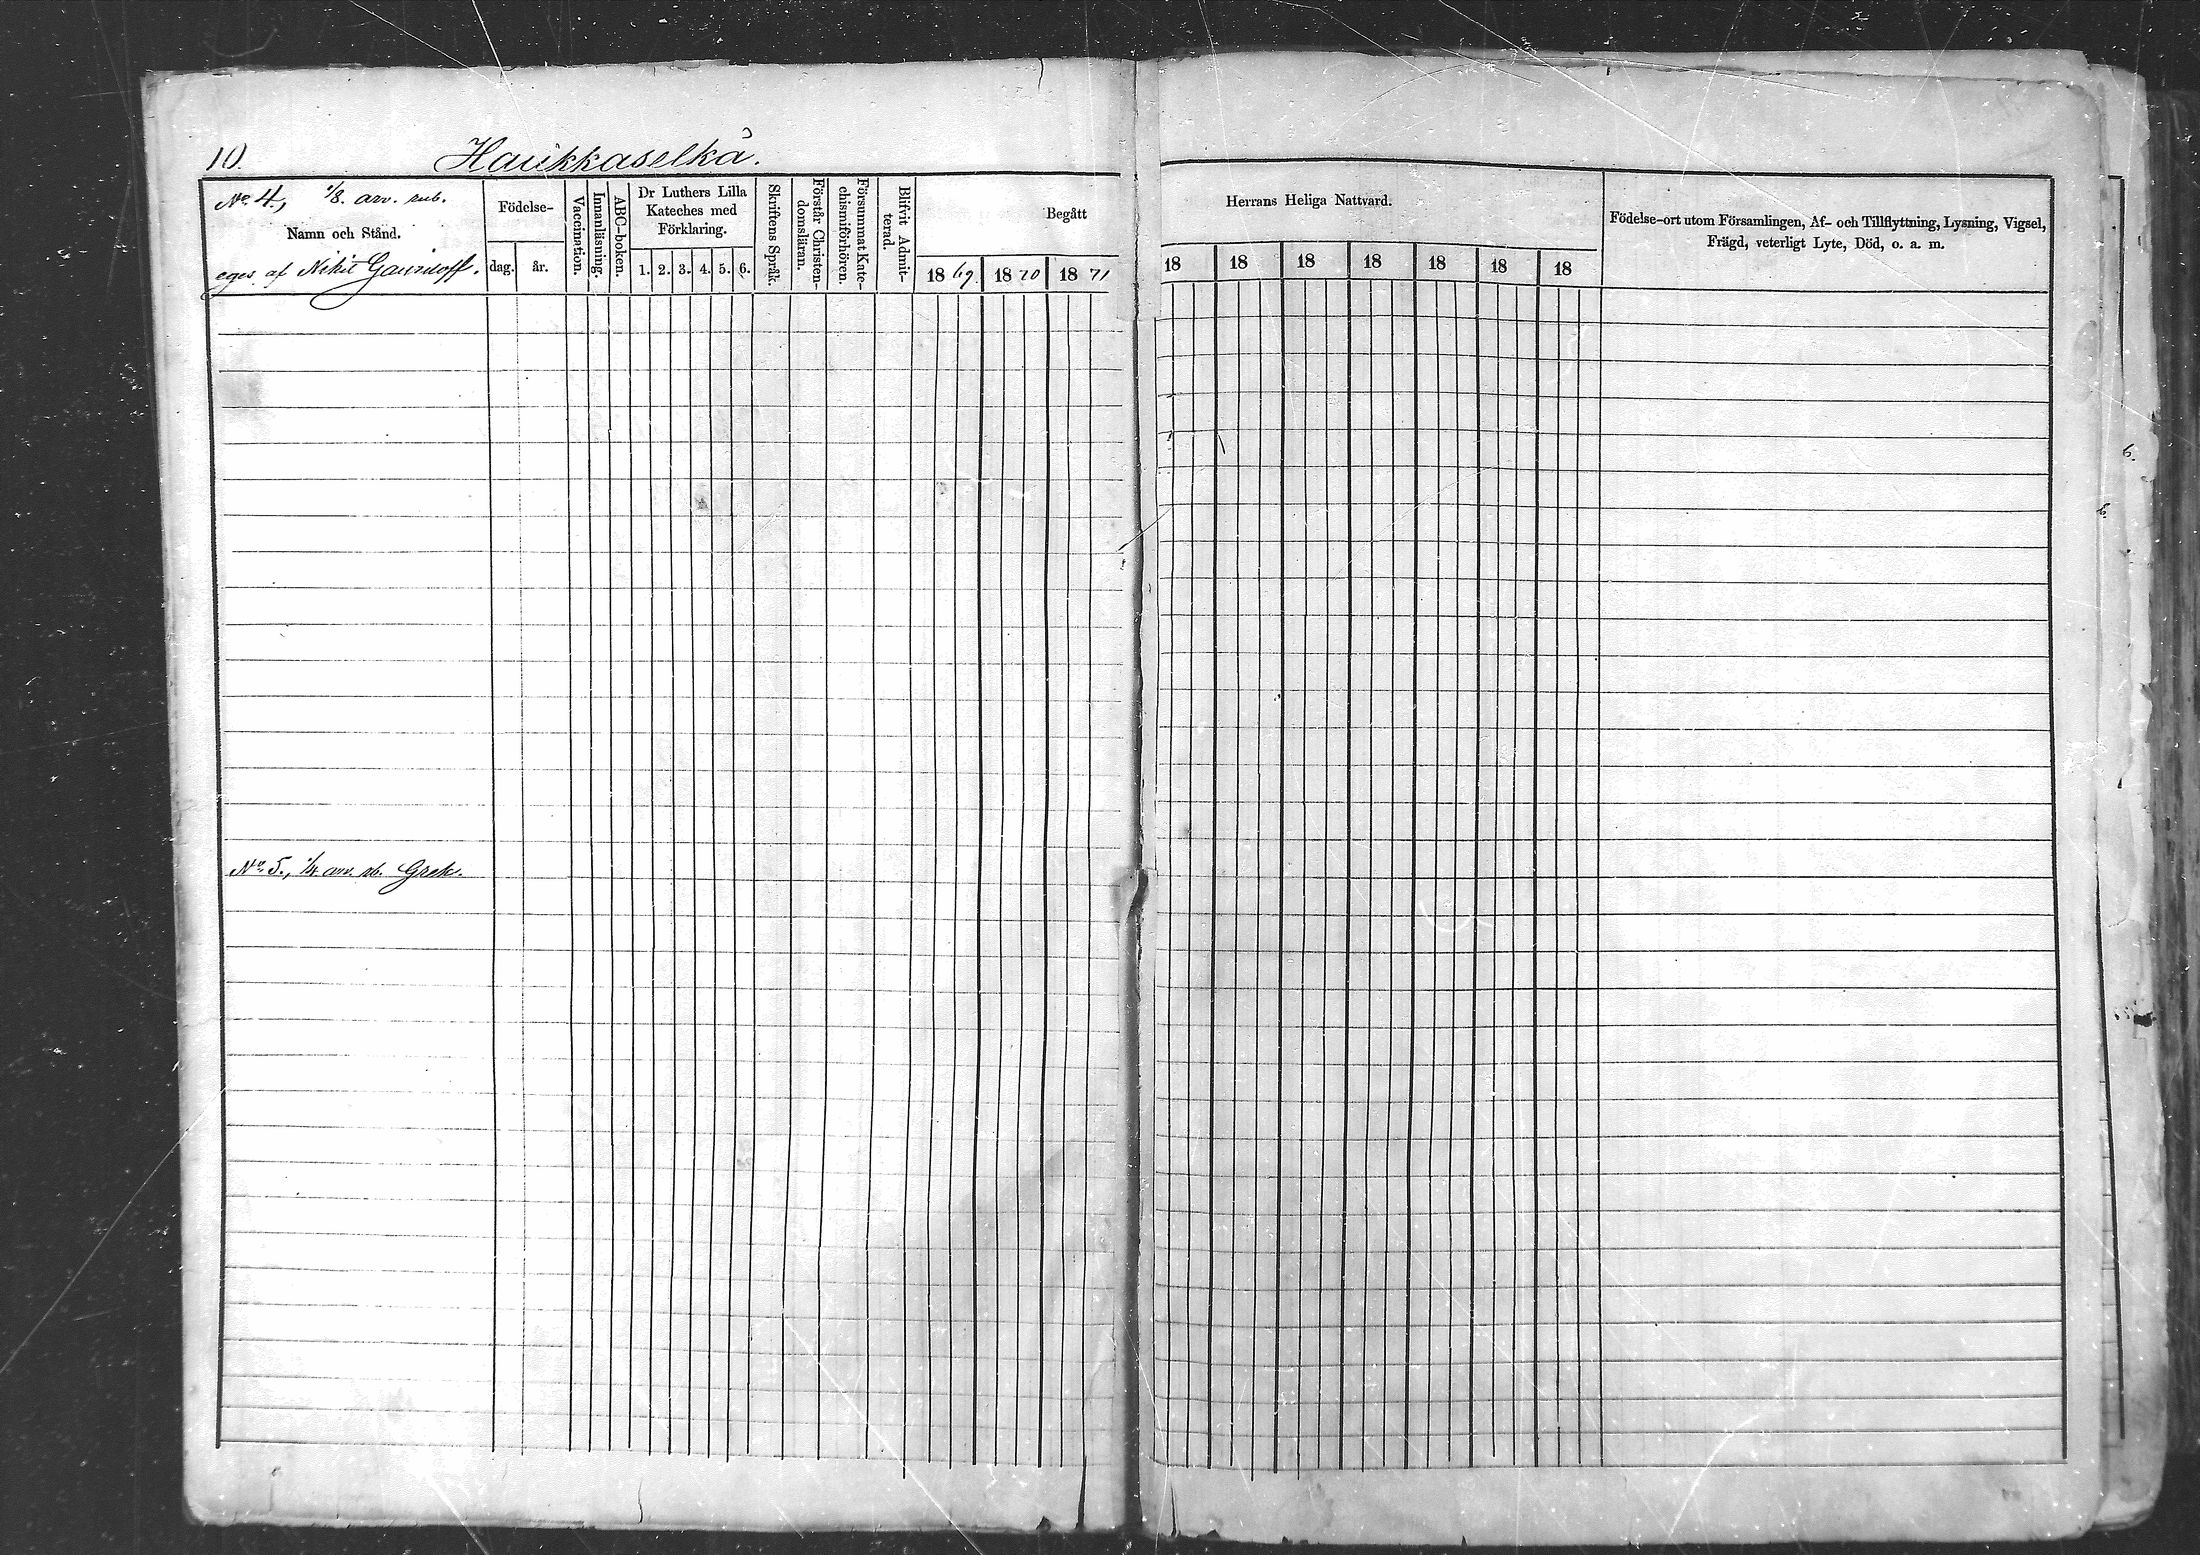 10.
Haukkaselkä.
No 4, 1/8. arv. rub.
Namn och Stånd.
eges af Nikit Gauriloff.
Födelse-
dag. år.
Vaccination.
Innanläsning.
ABC-boken.
Dr Luthers Lilla
Kateches med
Förklaring.
1. 2. 3. 4. 5. 6.
Skriftens Språk.
Förstår Christen-
domsläran.
Försummat Kate-
chismiförhören.
Blifvit Admit-
terad.
Begått
1869. 1870 1871
Herrans Heliga Nattvard.
18 18 18 18 18 18 18
Födelse-ort utom Församlingen, Af- och Tillflyttning, Lysning, Vigsel,
Frägd, veterligt Lyte, Död, o. a. m.
No 5., 1/4 arv. rb. Grek.
6.
6.